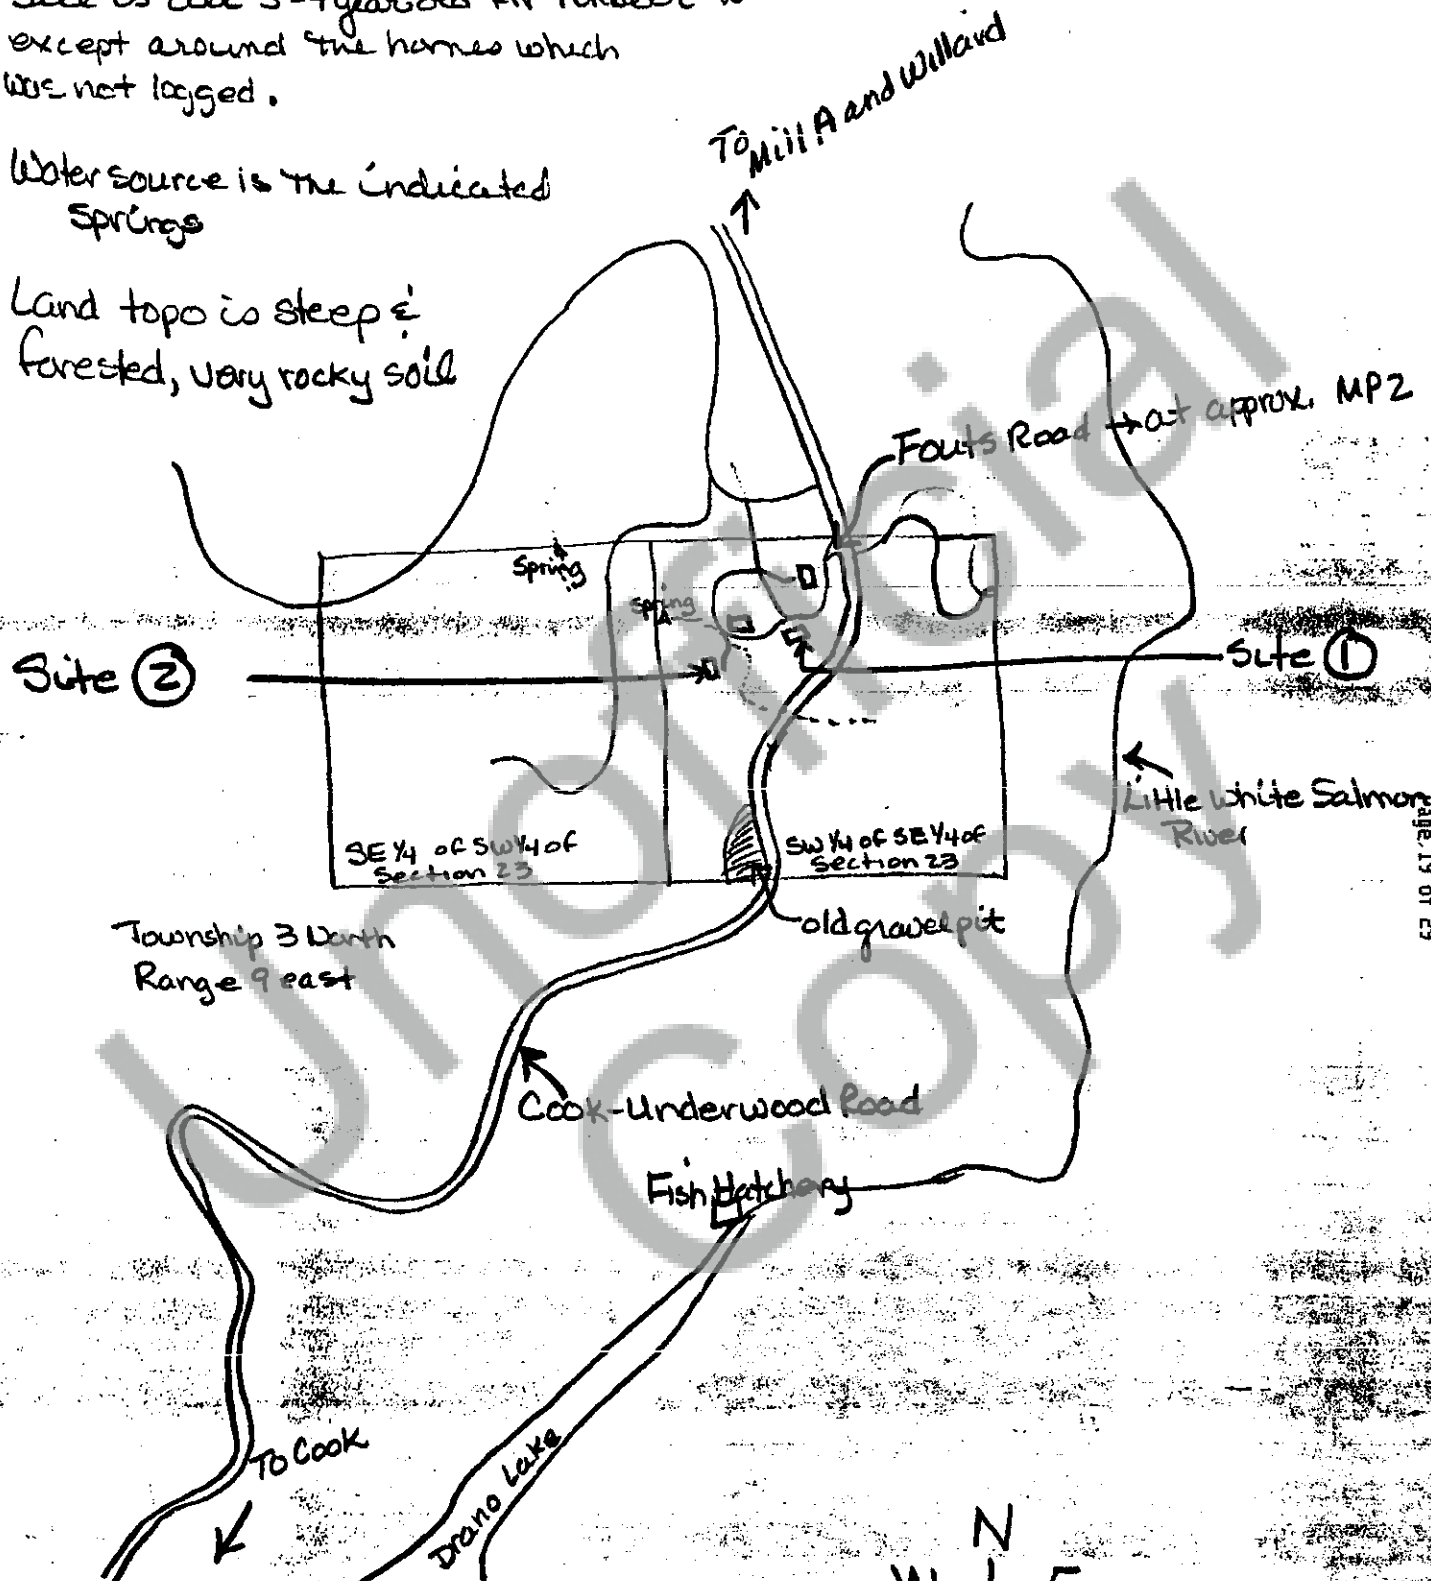 except around the homes which
was not logged.
Water source is the indicated
Springs
Land topo is steep &
forested, very rocky soil
To Mill A and Willard
Fouts Road → at approx. MP2
Spring
Spring
Site ②
Site ①
Little White Salmon
River
SE 1/4 of SW 1/4 of
Section 23
SW 1/4 of SE 1/4 of
Section 23
old gravel pit
Township 3 North
Range 9 east
Cook-Underwood Road
Fish Hatchery
To Cook
Drano Lake
N
W
E
Unofficial
Copy